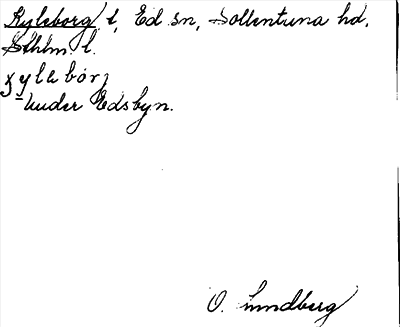 Kyleborg t, Ed sn, Sollentuna hd,
Sthlm l.
xylebórj
under Edsbyn.
O. Lundberg